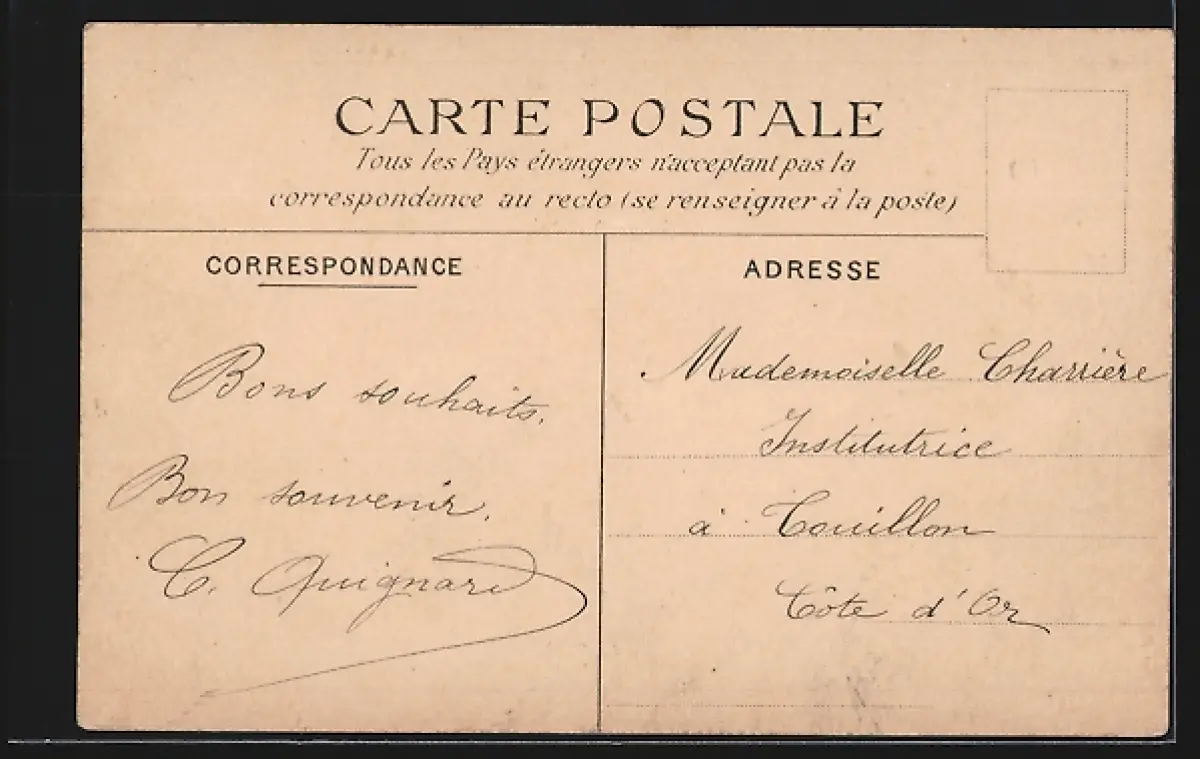 CARTE POSTALE
Tous les Pays étrangers n'acceptant pas la
correspondance au recto (se renseigner à la poste)
CORRESPONDANCE
Bons souhaits.
Bon souvenir.
C. Quignard
ADRESSE
Mademoiselle Charrière
Institutrice
à Touillon
Côte d'Or